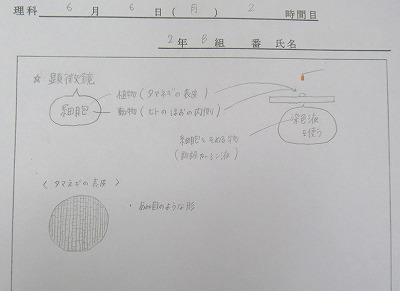 理科 6月 6日(月) 2 時間目
2年 B組 番 氏名
☆ 顕微鏡
細胞
植物(タマネギの表皮)
動物(ヒトのほおの内側)
細胞を染める物
(酢酸カーミン液)
染色液
を使う
〈タマネギの表皮〉
・あみ目のような形